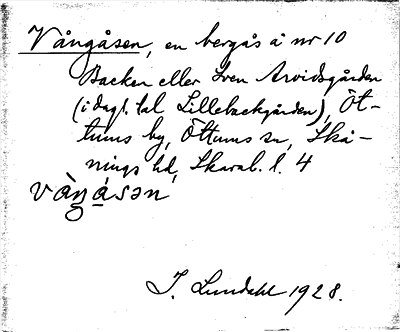 Vångåsen, en bergås å nr 10
Backen eller Sven Arvidsgården
(i dagl. tal Lillebackgården), Öt-
tums by, Öttums sn, Skå-
nings hd, Skarab. l. 4
vàŋá̱sən
I. Lundahl 1928.